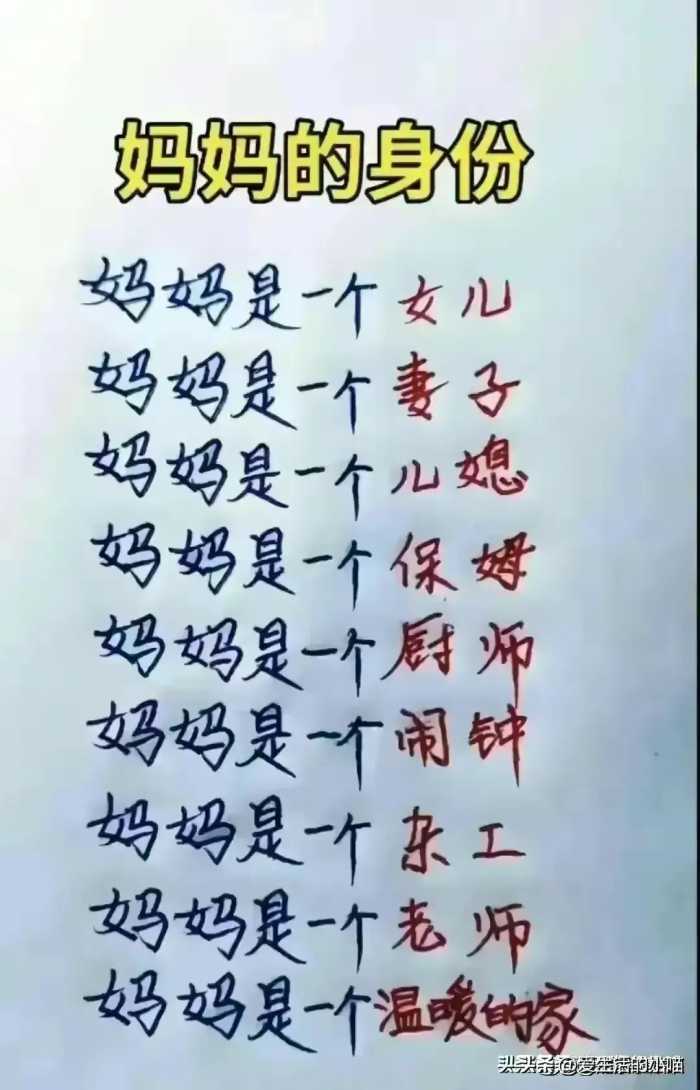 妈妈的身份
妈妈是一个女儿
妈妈是一个妻子
妈妈是一个儿媳
妈妈是一个保姆
妈妈是一个厨师
妈妈是一个闹钟
妈妈是一个杂工
妈妈是一个老师
妈妈是一个温暖的家
头条@爱生活的喵